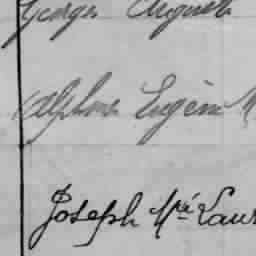 Georges Auguste
Alphonse Eugène M
Joseph Mié Laur